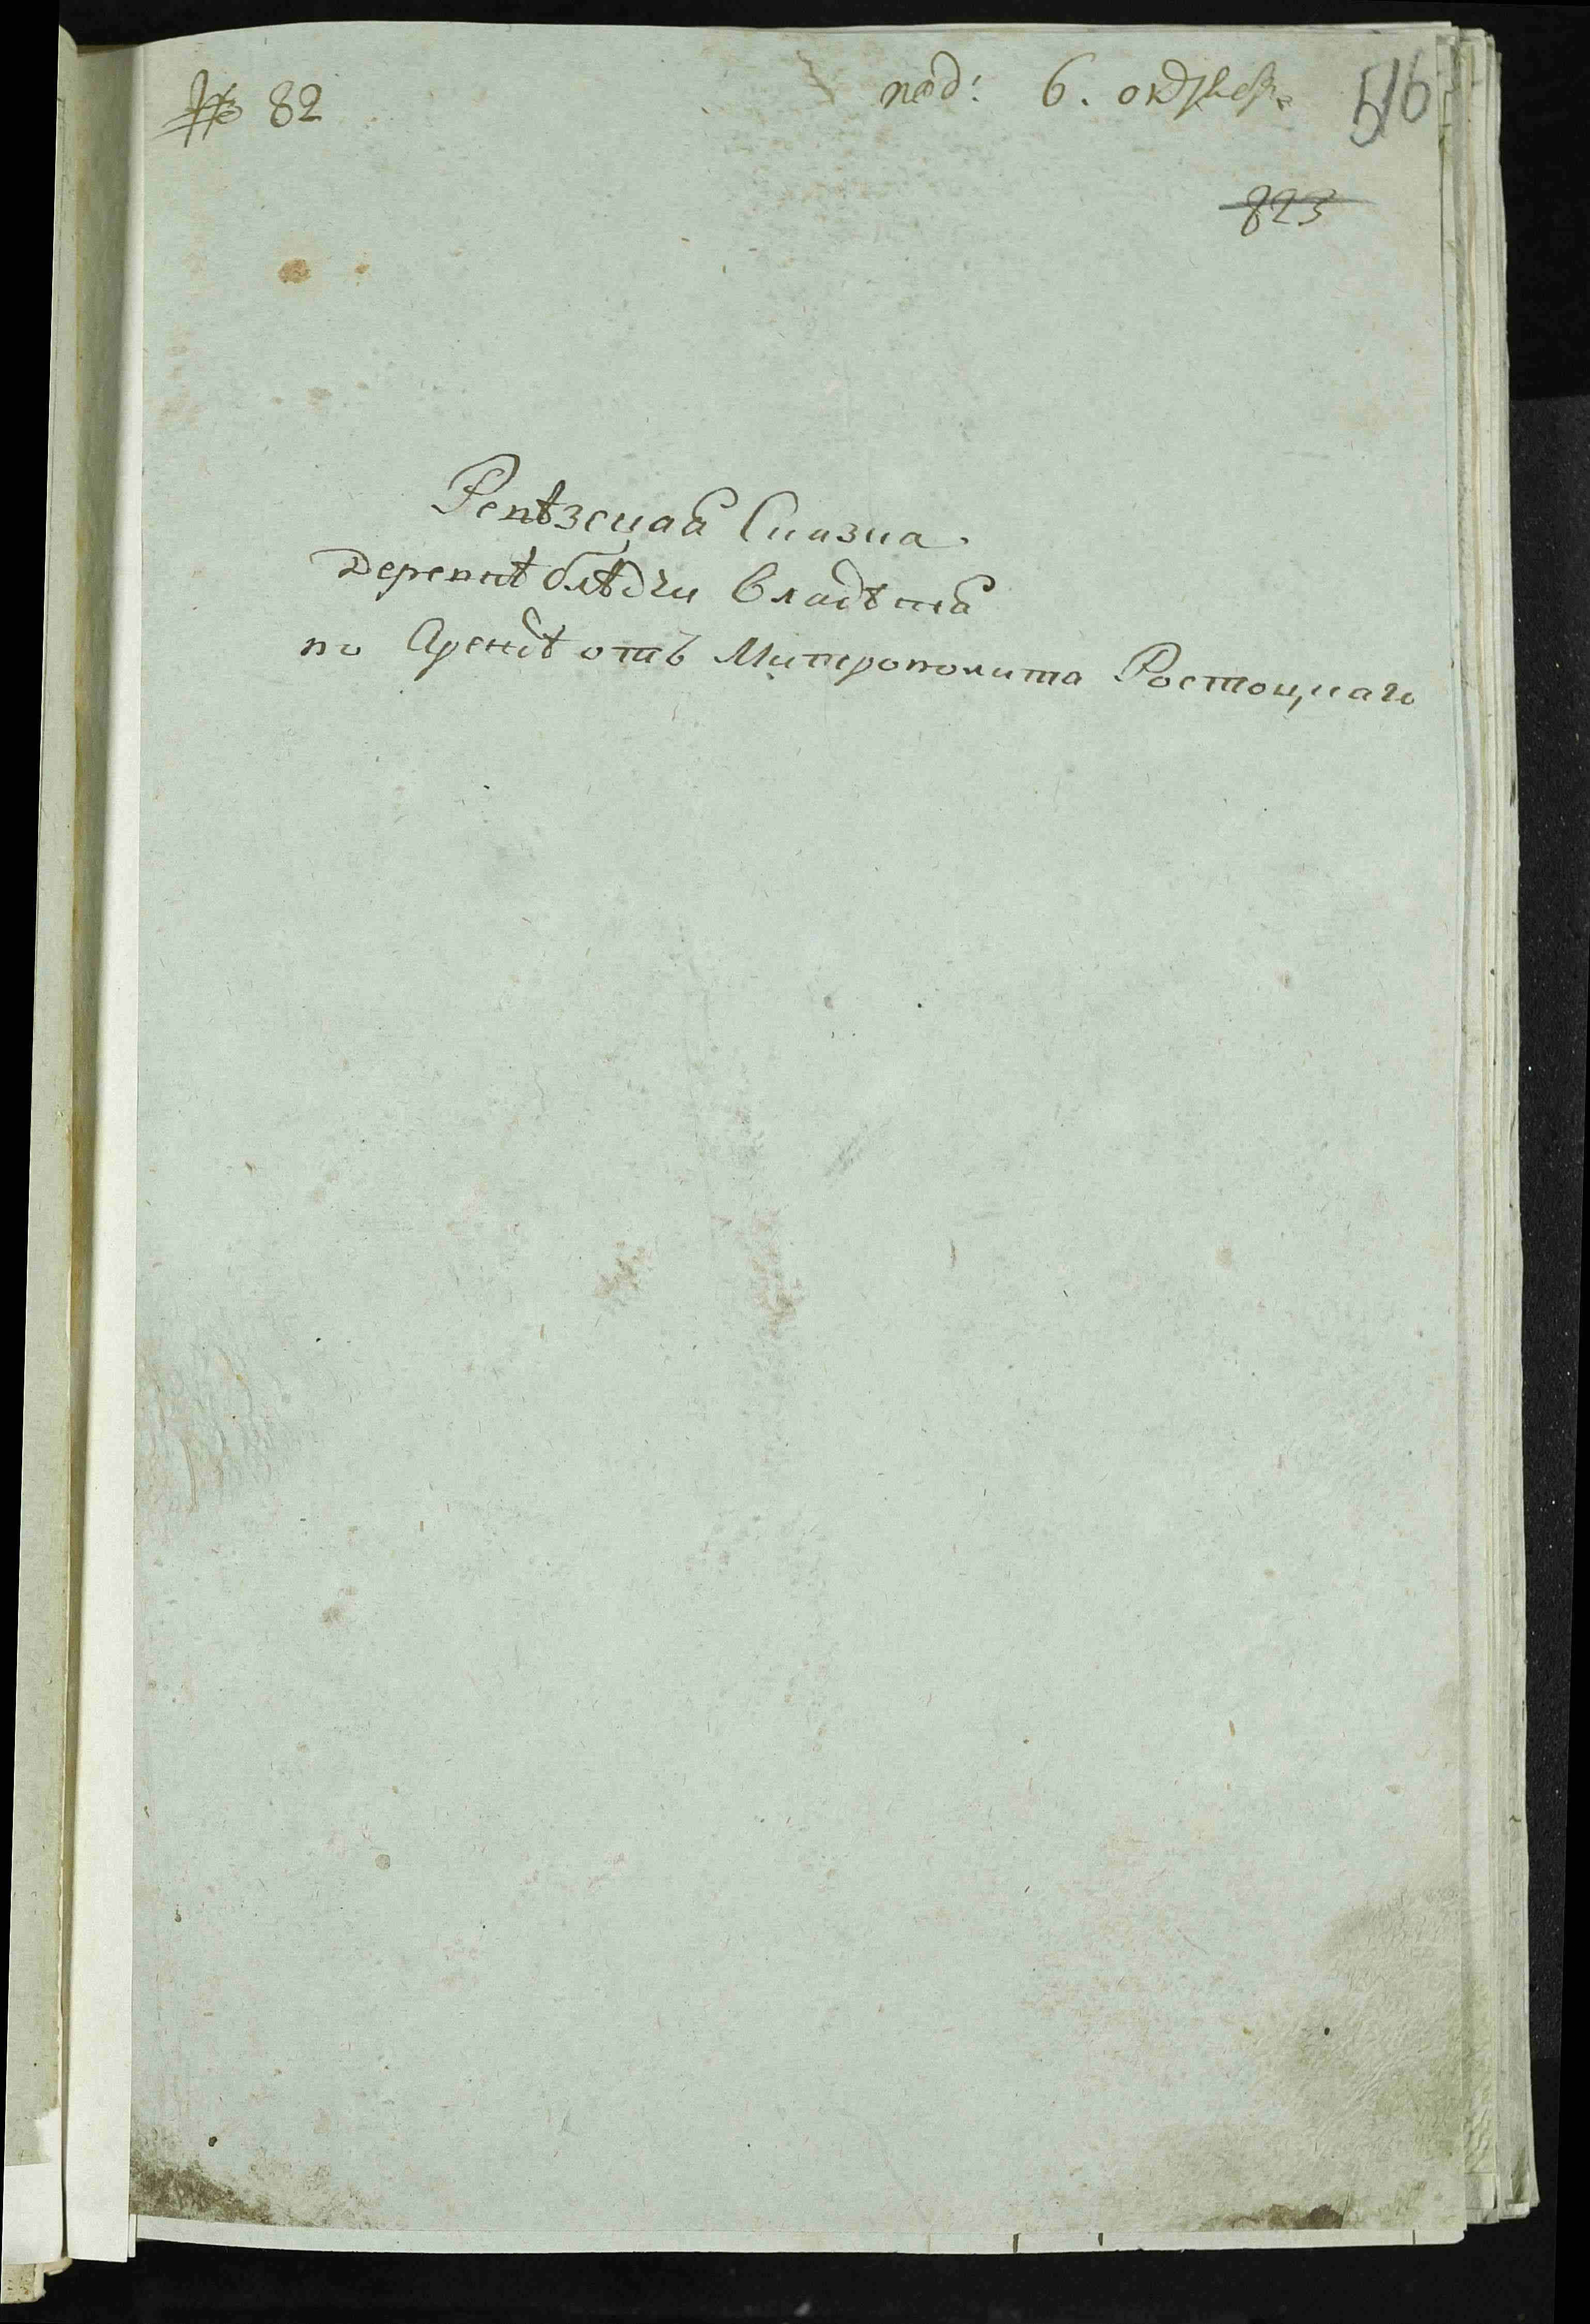 № 82
под: 6. октября
516
823
Ревѣзская Сказка.
Деревнѣ блѣдчи Владѣния
по Арендѣ отъ Митрополита Ростоцкаго